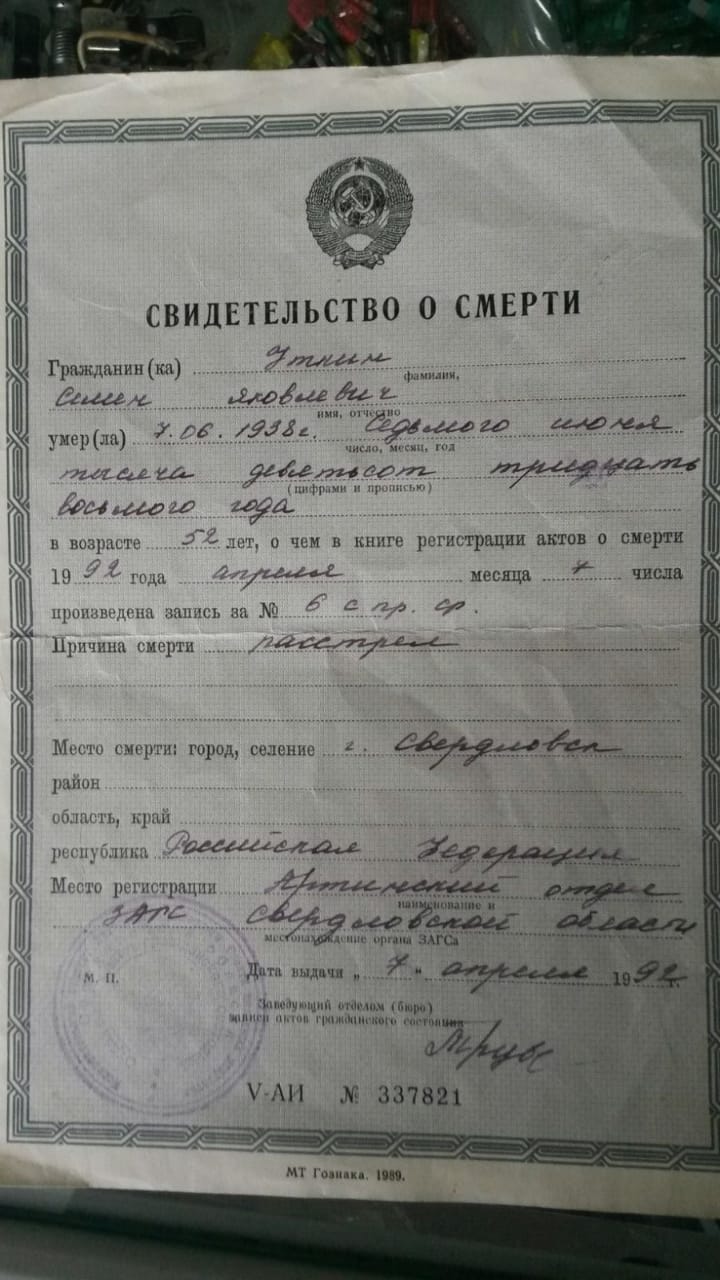 СВИДЕТЕЛЬСТВО О СМЕРТИ
Гражданин(ка) Уткин
фамилия,
Семен Яковлевич
имя, отчество
умер(ла) 7.06.1938г. Седьмого июня
число, месяц, год
тысяча девятьсот тридцать
(цифрами и прописью)
восьмого года
в возрасте 52 лет, о чем в книге регистрации актов о смерти
1992 года апреля месяца 7 числа
произведена запись за № 6 с пр. ср.
Причина смерти расстрел
Место смерти: город, селение г. Свердловск
район
область, край
республика Российская Федерация
Место регистрации Артинский отдел
наименование и
ЗАГС Свердловской области
местонахождение органа ЗАГСа
Дата выдачи „ 7 " апреля 1992 г.
М. П.
Заведующий отделом (бюро)
записи актов гражданского состояния
V-АИ № 337821
МТ Гознака. 1989.